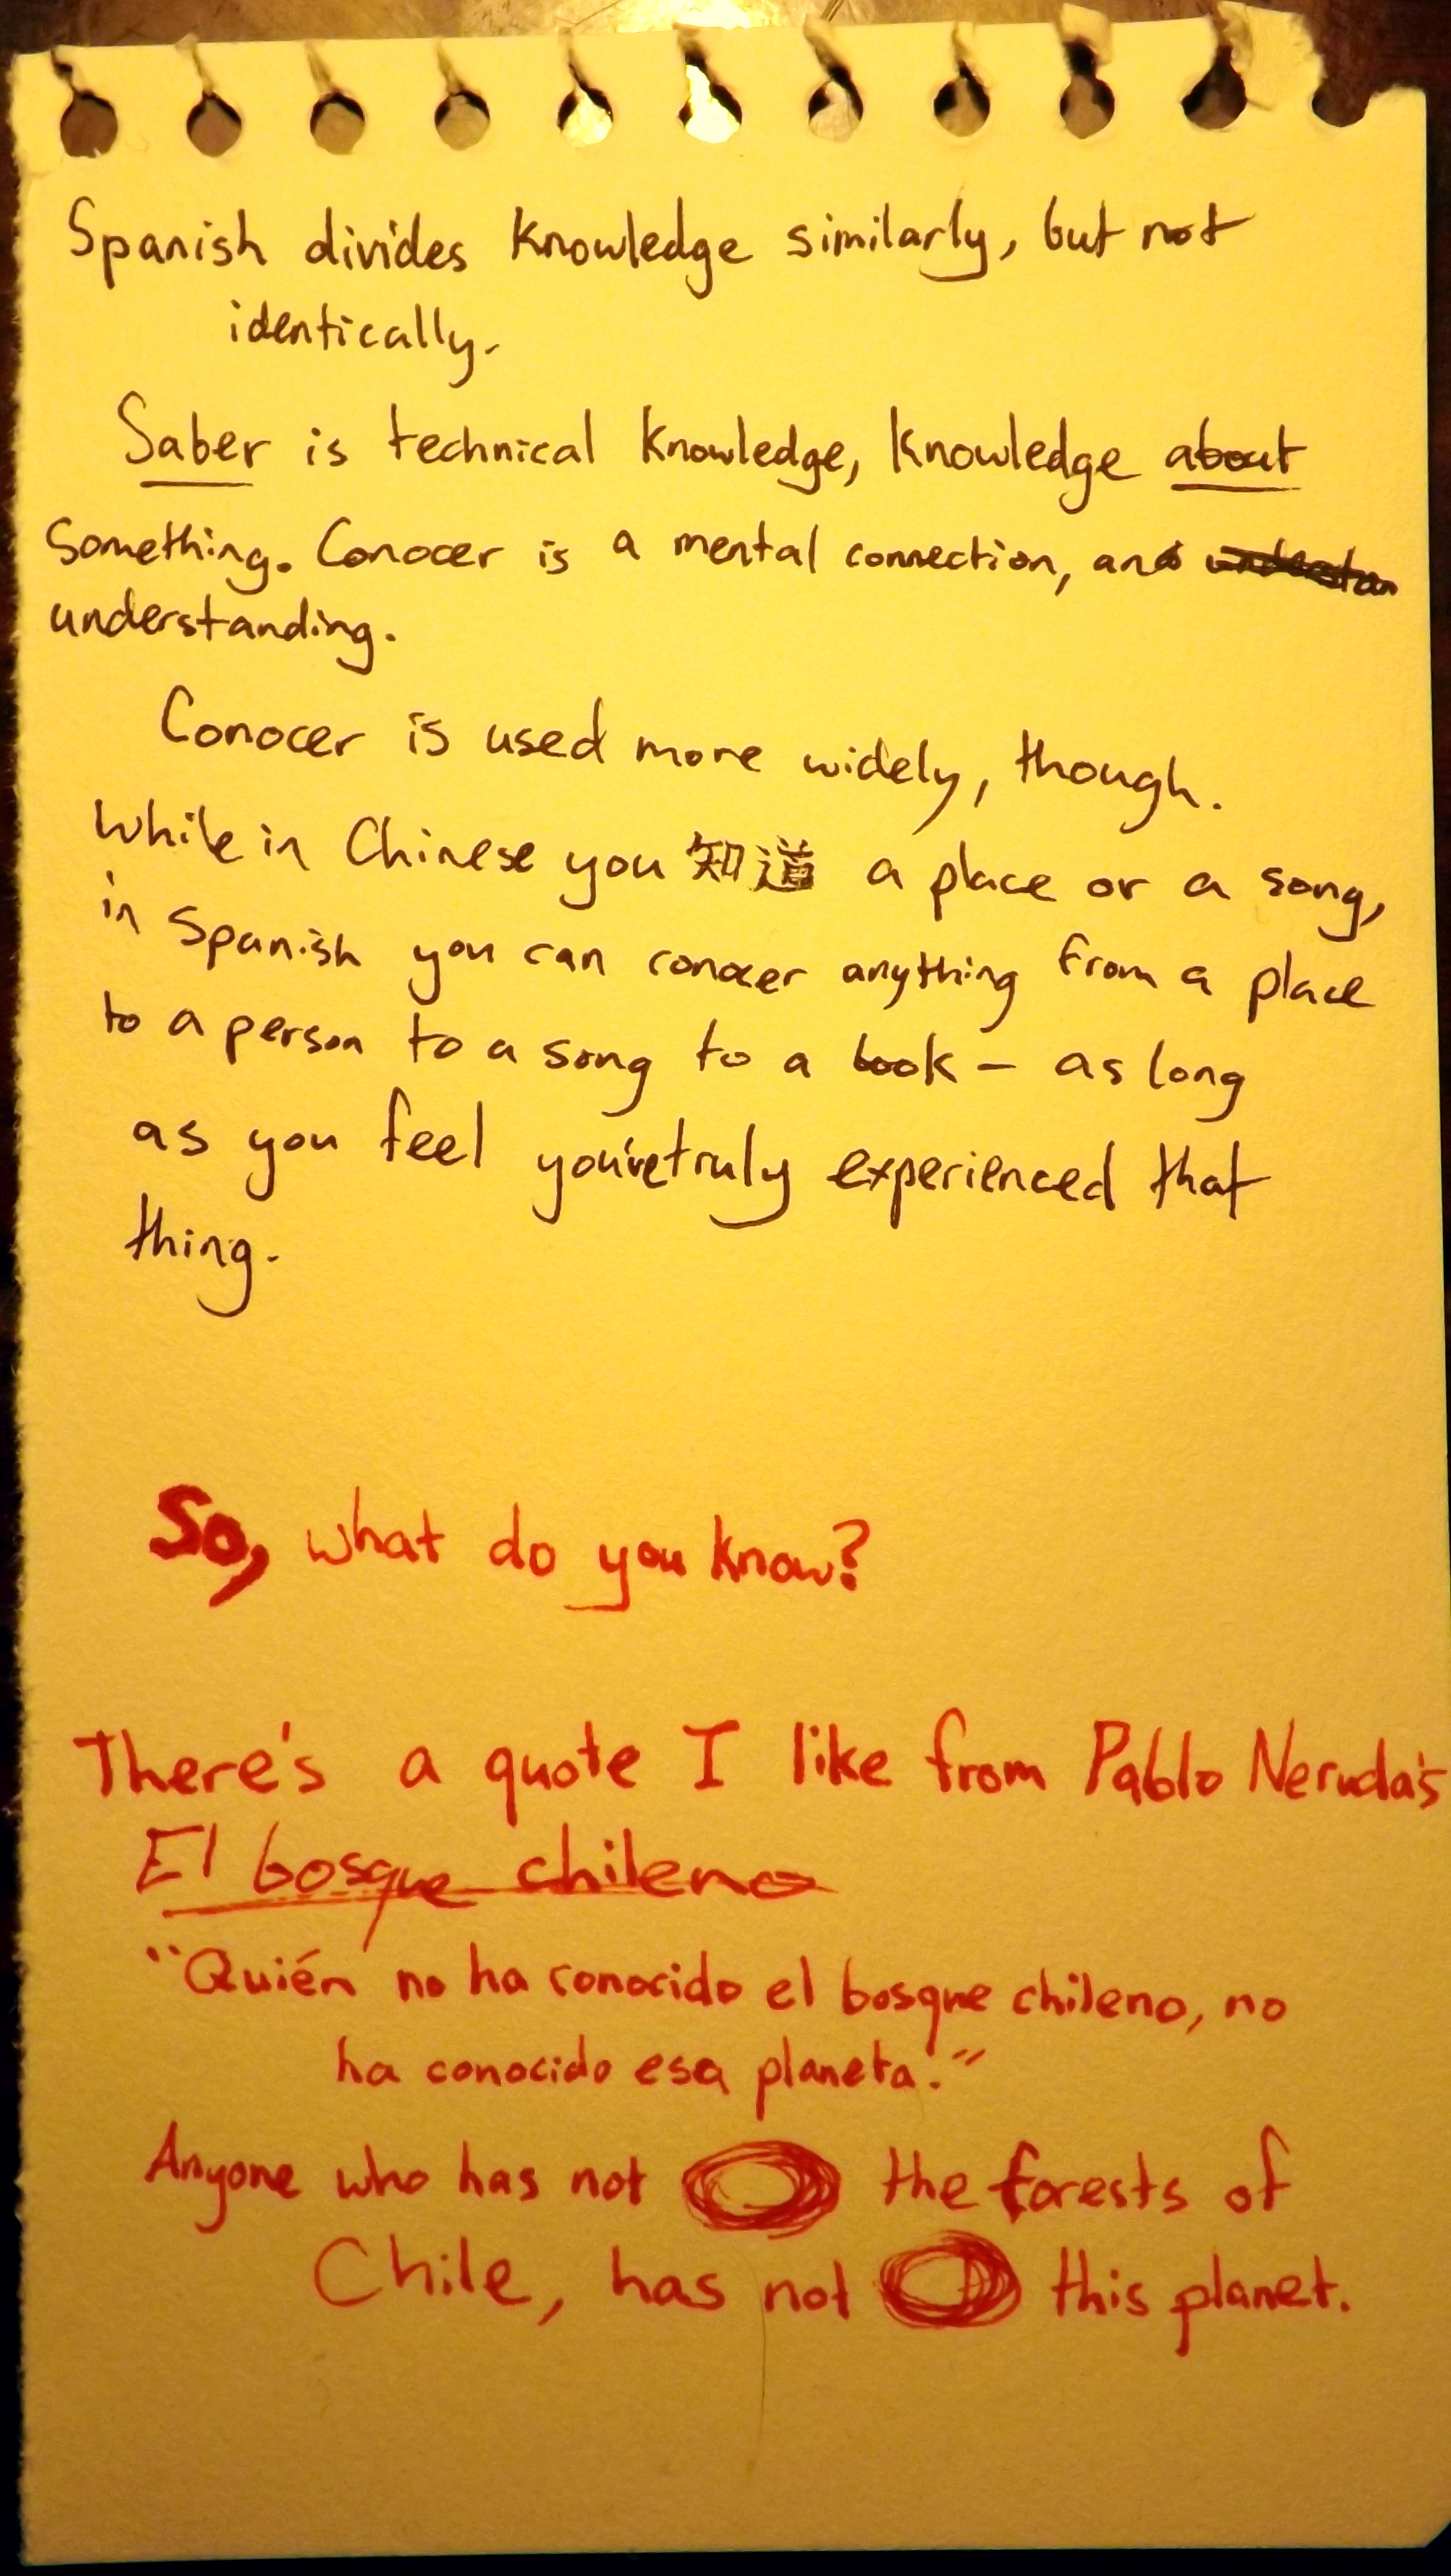 Spanish divides knowledge similarly, but not
identically.
Saber is technical knowledge, knowledge about
something. Conocer is a mental connection, and
understanding.
Conocer is used more widely, though.
While in Chinese you 知道 a place or a song,
in Spanish you can conocer anything from a place
to a person to a song to a book – as long
as you feel you've truly experienced that
thing.
So, what do you know?
There's a quote I like from Pablo Neruda's
El bosque chileno
"Quién no ha conocido el bosque chileno, no
ha conocido esa planeta."
Anyone who has not the forests of
Chile, has not this planet.